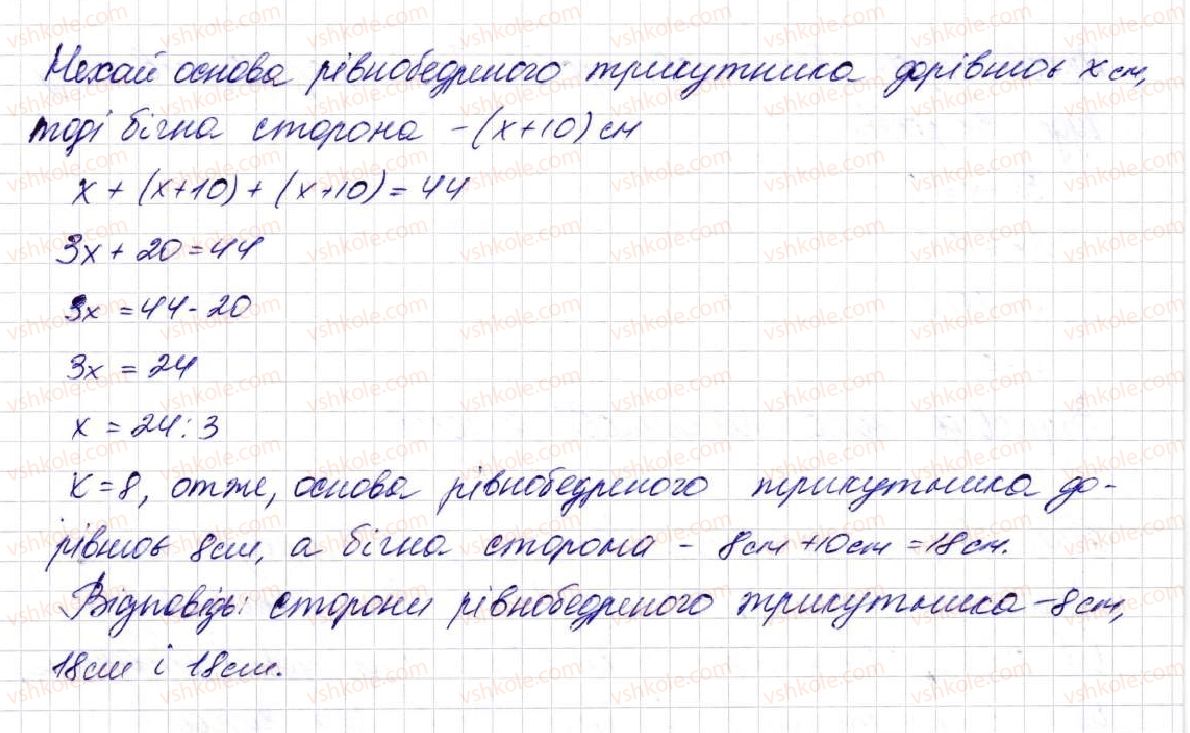 Нехай основа рівнобедреного трикутника дорівнює x см,
тоді бічна сторона - (x+10) см
x + (x+10) + (x+10) = 44
3x + 20 = 44
3x = 44 - 20
3x = 24
x = 24 : 3
x = 8, отже, основа рівнобедреного трикутника до-
рівнює 8 см, а бічна сторона - 8 см + 10 см = 18 см.
Відповідь: сторони рівнобедреного трикутника - 8 см,
18 см і 18 см.
vshkole.com